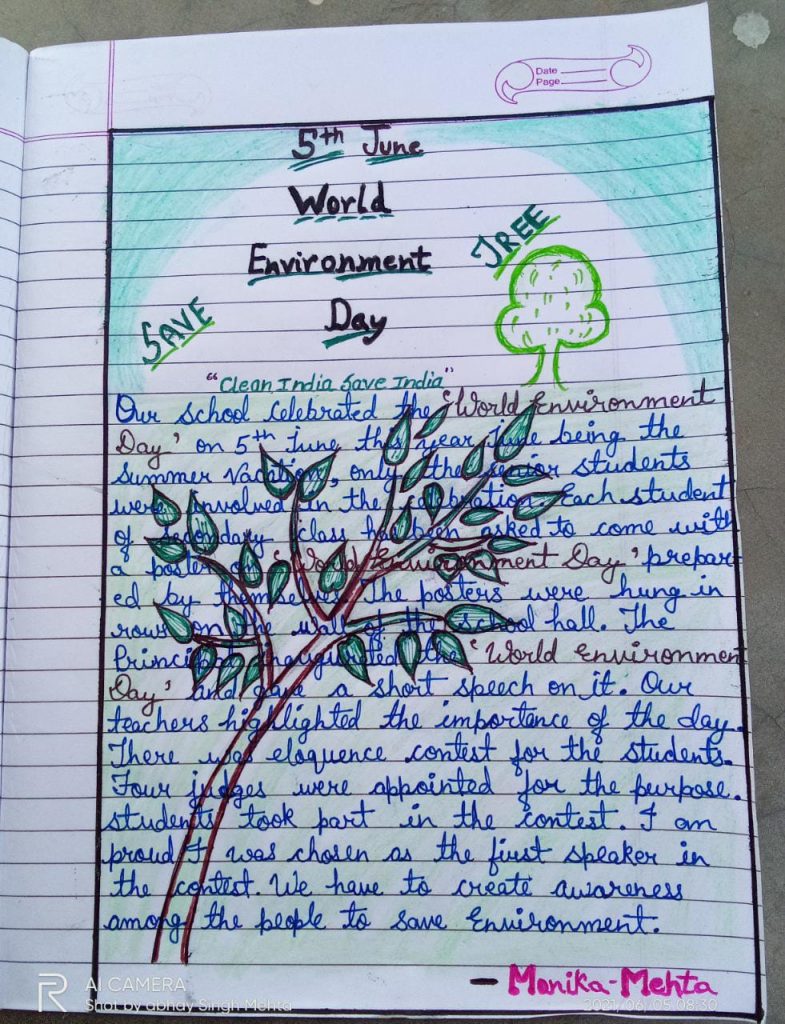 Date
Page
5th June
World
Environment
Day
SAVE
TREE
"Clean India Save India"
Our school celebrated the 'World Environment
Day' on 5th June this year June being the
Summer Vacation, only the senior students
were involved in the celebration. Each student
of secondary class had been asked to come with
a poster on 'World Environment Day' prepar-
ed by themselves. The posters were hung in
rows on the wall of the school hall. The
Principal inaugurated the 'World Environment
Day' and gave a short speech on it. Our
teachers highlighted the importance of the day.
There was eloquence contest for the students.
Four judges were appointed for the purpose.
students took part in the contest. I am
proud I was chosen as the first speaker in
the contest. We have to create awareness
among the people to save Environment.
- Monika-Mehta
R
AI CAMERA
Shot by abhay Singh Mehta
2021/06/05 08:30